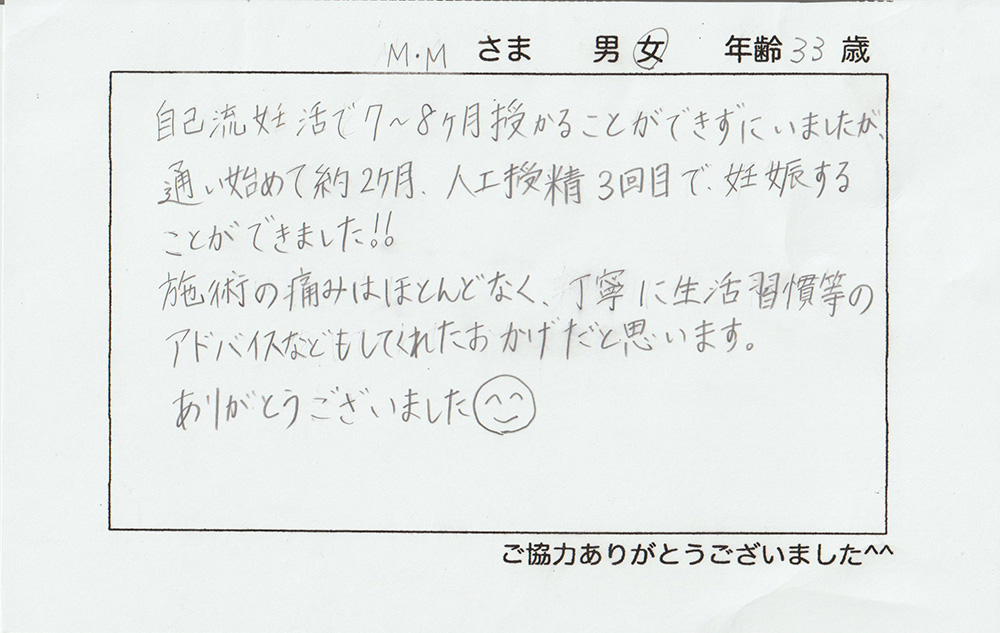 M.M さま 男 女 年齢 33 歳
自己流妊活で7～8ヶ月授かることができずにいましたが、
通い始めて約2ヶ月、人工授精3回目で、妊娠する
ことができました!!
施術の痛みはほとんどなく、丁寧に生活習慣等の
アドバイスなどもしてくれたおかげだと思います。
ありがとうございました
ご協力ありがとうございました^^